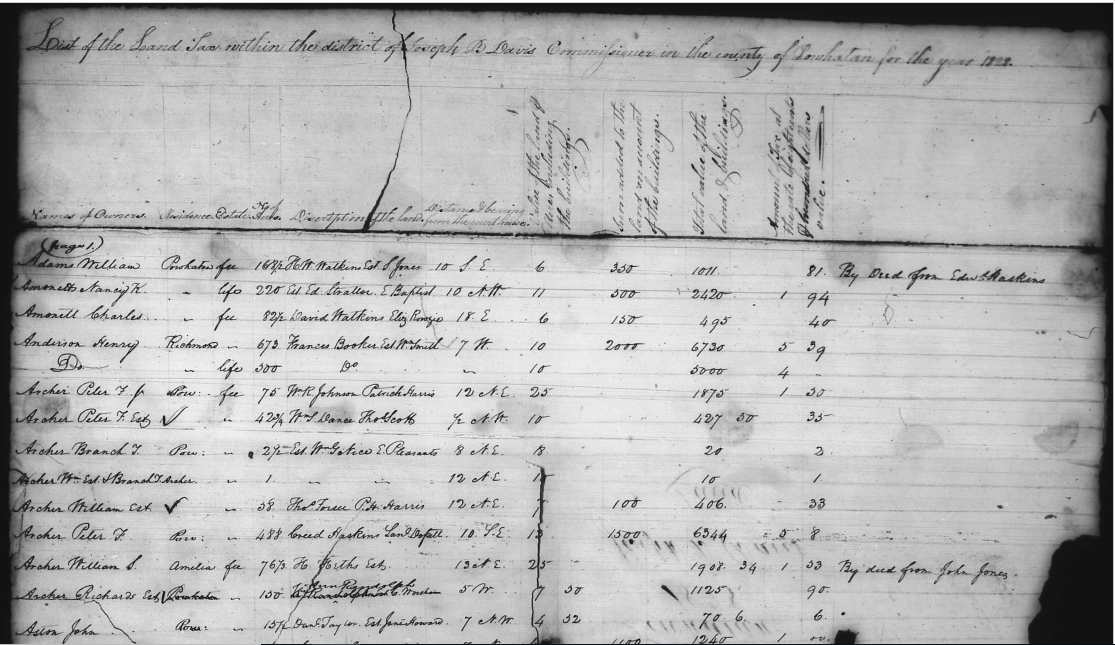 List of the Land Tax within the district of Joseph B Davis Commissioner in the county of Powhatan for the year 1828.
Names of Owners. Residence. Estate. No of Acres Description of the land. Distance & bearing from the court house. Value of the land including the buildings. Sum added to the land on account of the buildings. Total value of the land & buildings. Amount of Tax at
(page 1.)
Adams William Powhatan fee 168½ H. W. Watkins Est S Jones 10 S. E. 6 350 1011 81 By Deed from Edwd Haskins
Amonett Nancy K. " life 220 Est Ed. Stratton E Baptist 10 N.W. 11 500 2420 1 94
Amonett Charles " fee 82½ David Watkins Eliz 18 E 6 150 495 40
Anderson Henry Richmond " 673 Frances Booker Est Wm Smith 7 W. 10 2000 6730 5 39
Do " life 500 Do " 10 5000 4 -
Archer Peter F Jr Pow: fee 75 Wm R Johnson Patrick Harris 12 N.E. 25 1875 1 50
Archer Peter F. Est ✓ " 42¾ Wm S Dance Thos Scott ½ N.W. 10 427 50 35
Archer Branch T. Pow: " 2½ Est. Wm E Pleasants 8 N.E. 18 20 2
Archer Wm Est & Branch T Archer " 1 " " 12 N.E. 10 1
Archer William Est. ✓ " 58 Thos P. H. Harris 12 N.E. 7 100 406 33
Archer Peter F. Pow: " 488 Creed Haskins 10 S.E. 13 1500 6344 5 8
Archer William S. Amelia fee 76⅓ H. Heths Est. 13 N.E. 25 1908 34 1 53 By deed from John Jones.
Archer Richards Est ✓ Powhatan " 150 Randolph C. Worsham 5 W. 7 50 1125 90
Aston John Pow: " 15½ Danl Taylor. Est Jane Howard 7 N.W. 4 52 70 6 6
1100 1240 1